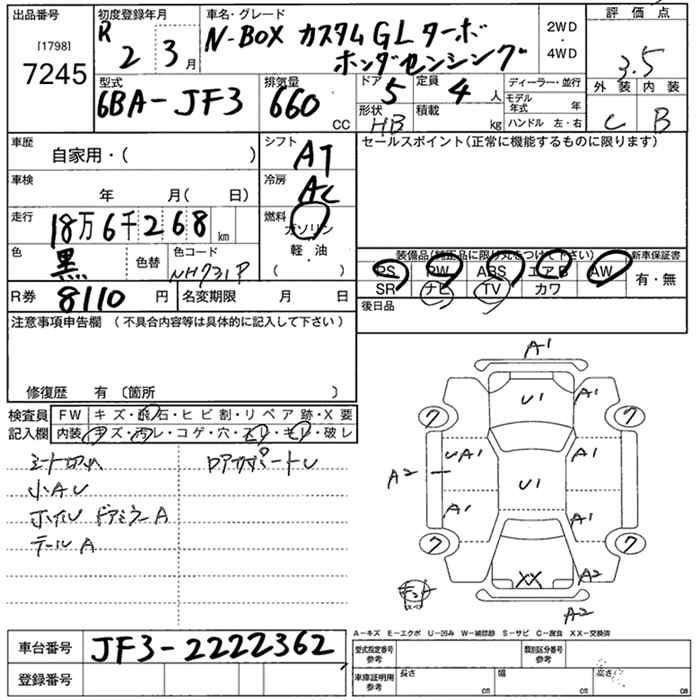 出品番号
[1798]
7245
初度登録年月
R 2 3月
車名・グレード
N-BOX カスタムGLターボ
ホンダセンシング
2WD
・
4WD
評価点
3.5
外装 内装
C B
型式
6BA-JF3
排気量
660 CC
ドア 5
形状 HB
定員 4 人
積載 kg
ディーラー・並行
モデル年式 年
ハンドル 左・右
車歴
自家用・( )
車検
年 月( 日)
走行
18万6千268 km
色 黒
色替
色コード
NH731P
シフト
AT
冷房
AC
燃料
ガソリン
軽・油
( )
セールスポイント(正常に機能するものに限ります)
装備品(純正品に限り丸をつけて下さい)
新車保証書
PS PW ABS エアB AW
SR ナビ TV カワ
有・無
後日品
R券 8110 円
名変期限 月 日
注意事項申告欄 (不具合内容等は具体的に記入して下さい)
修復歴 有 〔箇所 〕
検査員
記入欄
FW キズ・飛石・ヒビ割・リペア跡・X要
内装 キズ・汚レ・コゲ・穴・スレ・キレ・破レ
小AU
ホイル ドアミラーA
テールA
A1
U1
A1
7
7
UA1
A1
A2
U1
A1
A1
7
7
XX
A2
A2
A-キズ E-エクボ U-凹み W-補修跡 S-サビ C-腐食 XX-交換済
車台番号 JF3-2222362
登録番号
型式指定番号
参考
類別区分番号
参考
車庫証明用
参考
長さ cm
幅 cm
高さ cm